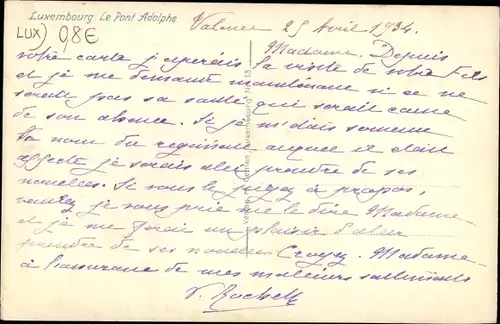 Luxembourg Le Pont Adolphe
LUX) 08E
Valmee 25 Avril 1934.
Madame. Depuis
votre carte j'esperais la visite de votre fils
et je me demande maintenant si ce ne
serait pas sa santé qui serait cause
de son absence. Si je m'étais souvenue
du nom du régiment auquel il était
affecté je serais allée prendre de ses
nouvelles. Si vous le jugez à propos,
veuillez je vous prie me le dire Madame
et je me ferai un plaisir d'aller
prendre de ses nouvelles Croyez. Madame
à l'assurance de mes meilleurs sentiments
V. Rochett